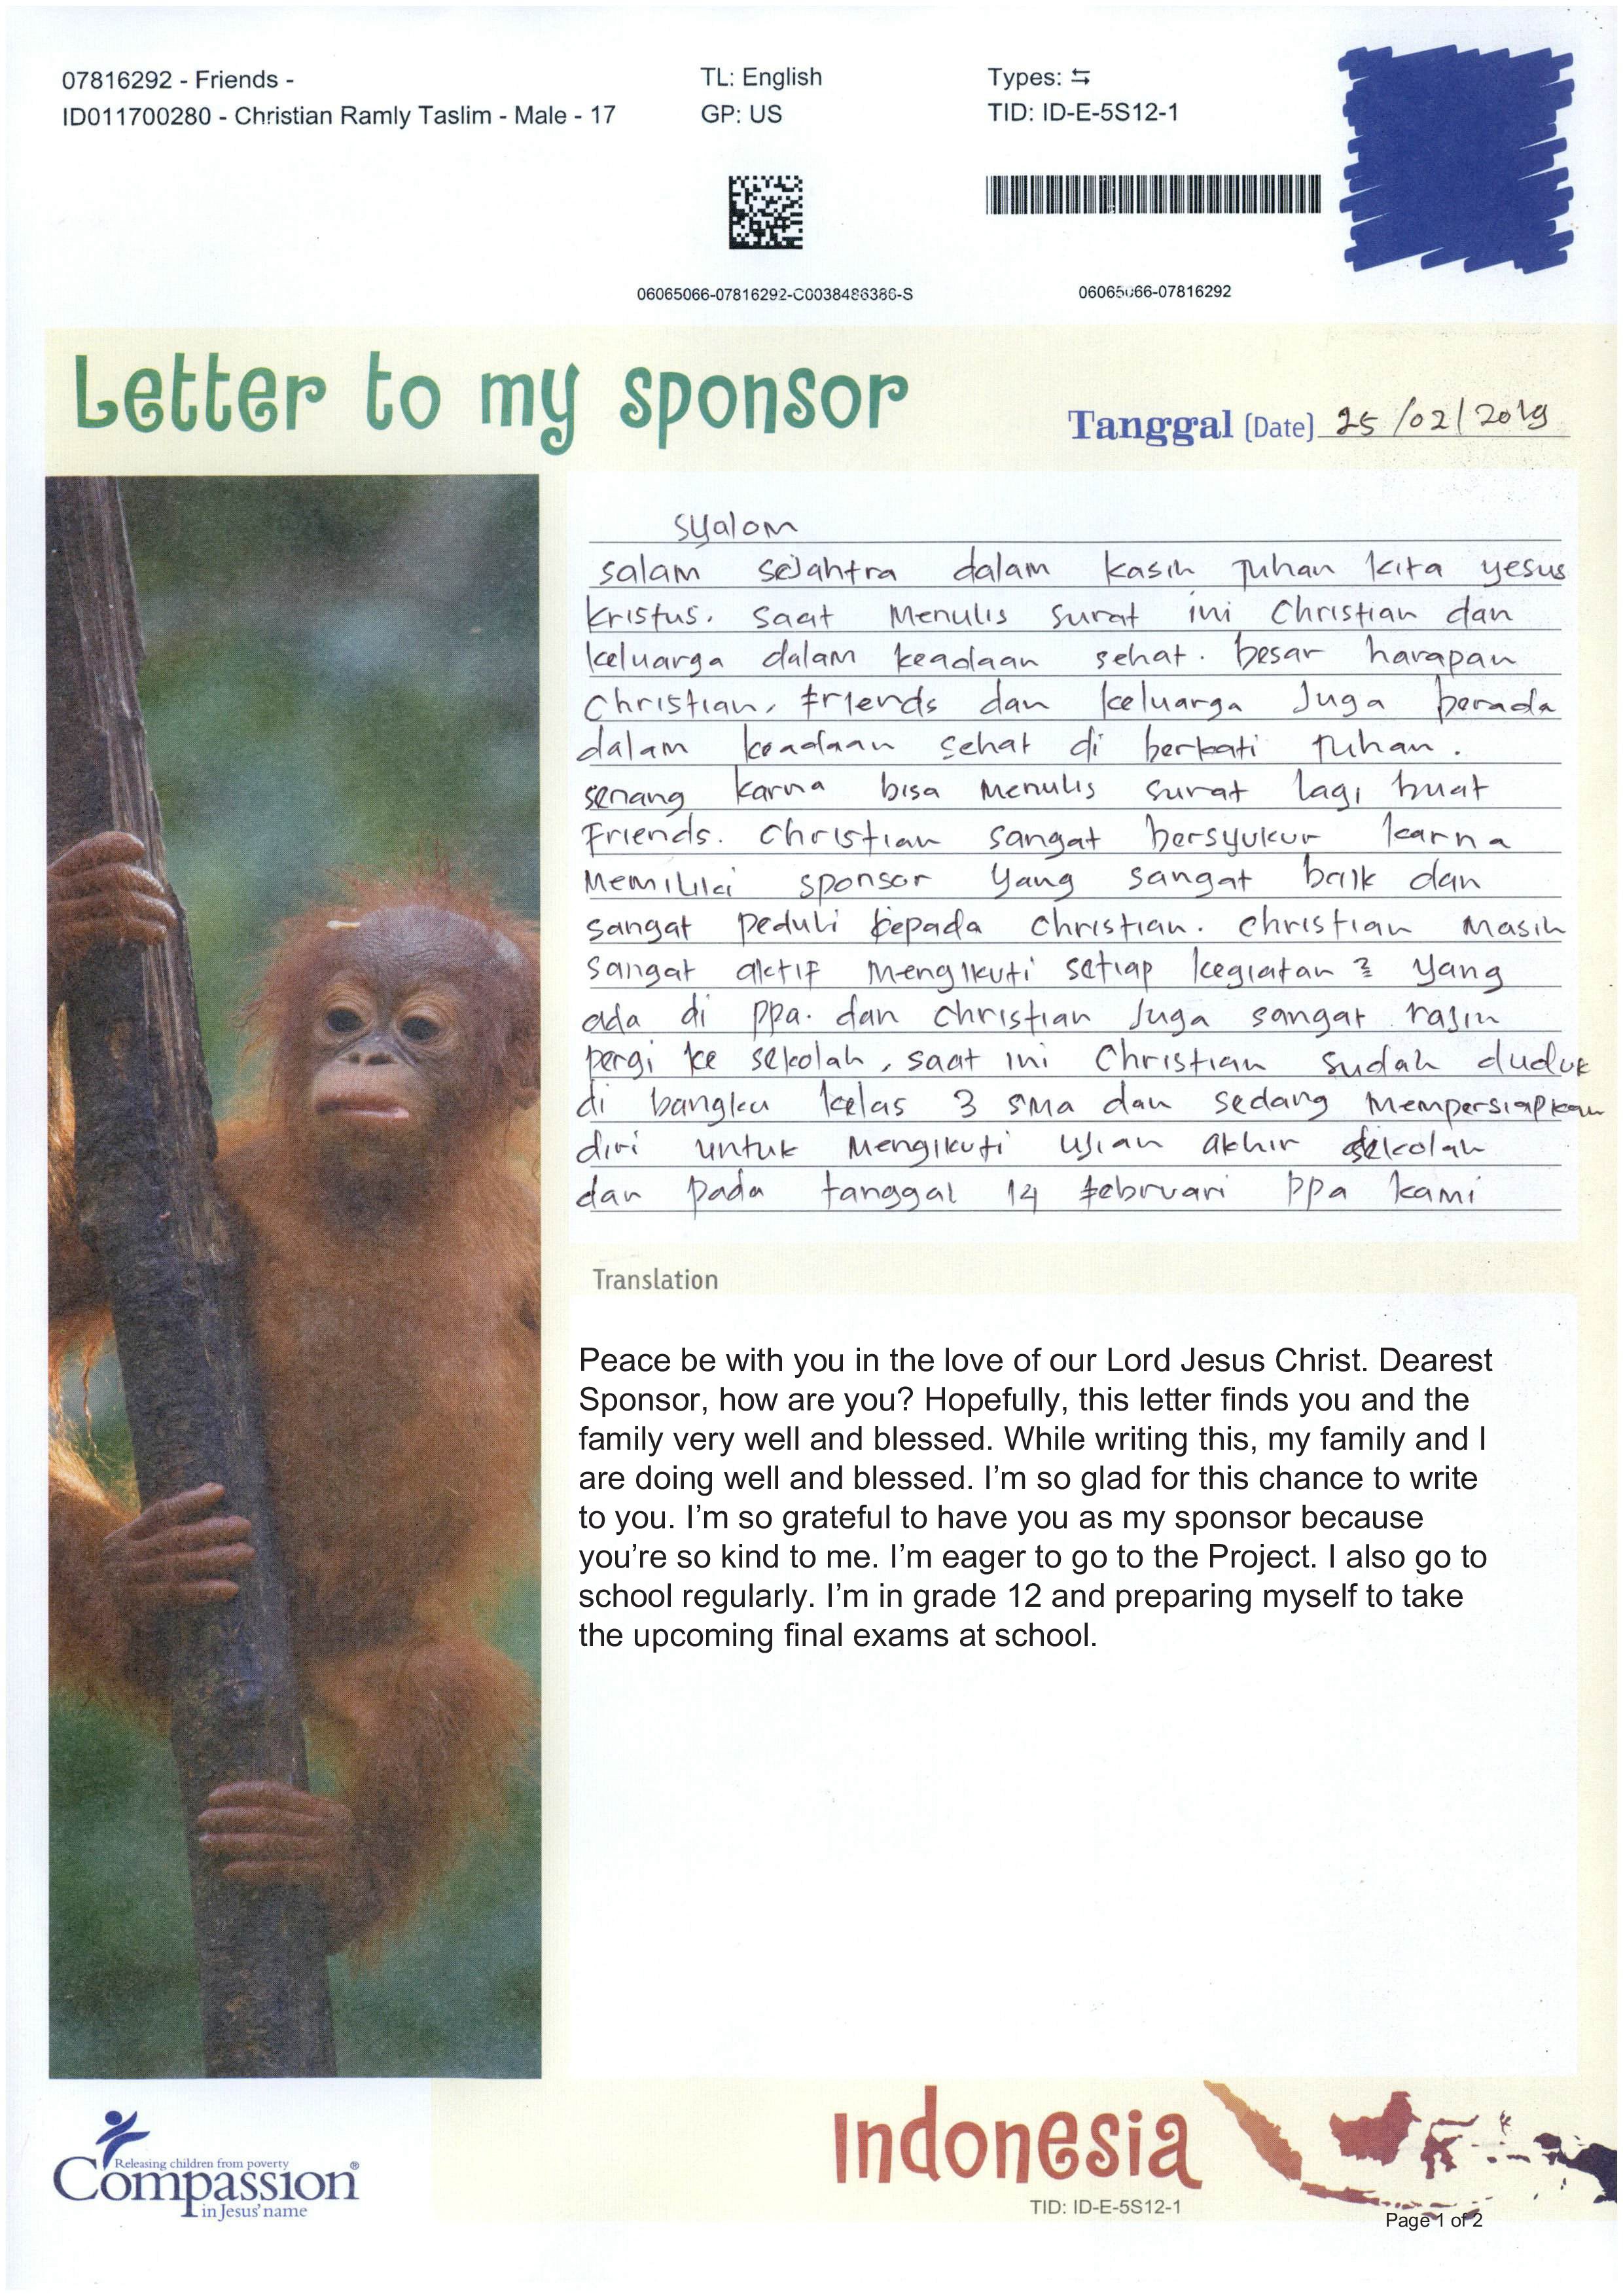 07816292 - Friends -
ID011700280 - Christian Ramly Taslim - Male - 17
TL: English
GP: US
Types: ⇆
TID: ID-E-5S12-1
06065066-07816292-C0038486386-S
06065066-07816292
Letter to my sponsor
Tanggal (Date) 25/02/2019
syalom
salam sejahtra dalam kasih Tuhan kita yesus
kristus. saat Menulis surat ini Christian dan
keluarga dalam keadaan sehat. besar harapan
Christian, friends dan keluarga Juga berada
dalam keadaan sehat di berkati Tuhan.
senang karna bisa Menulis surat lagi buat
Friends. Christian sangat bersyukur karna
Memiliki sponsor yang sangat baik dan
sangat peduli kepada Christian. Christian Masih
sangat aktif Mengikuti setiap kegiatan 2 yang
ada di ppa. dan Christian Juga sangat rajin
pergi ke sekolah, saat ini Christian sudah duduk
di bangku kelas 3 SMA dan sedang Mempersiapkan
diri untuk Mengikuti Ujian akhir sekolah
dan pada tanggal 14 februari ppa kami
Translation
Peace be with you in the love of our Lord Jesus Christ. Dearest
Sponsor, how are you? Hopefully, this letter finds you and the
family very well and blessed. While writing this, my family and I
are doing well and blessed. I'm so glad for this chance to write
to you. I'm so grateful to have you as my sponsor because
you're so kind to me. I'm eager to go to the Project. I also go to
school regularly. I'm in grade 12 and preparing myself to take
the upcoming final exams at school.
Releasing children from poverty
Compassion®
in Jesus' name
Indonesia
TID: ID-E-5S12-1
Page 1 of 2